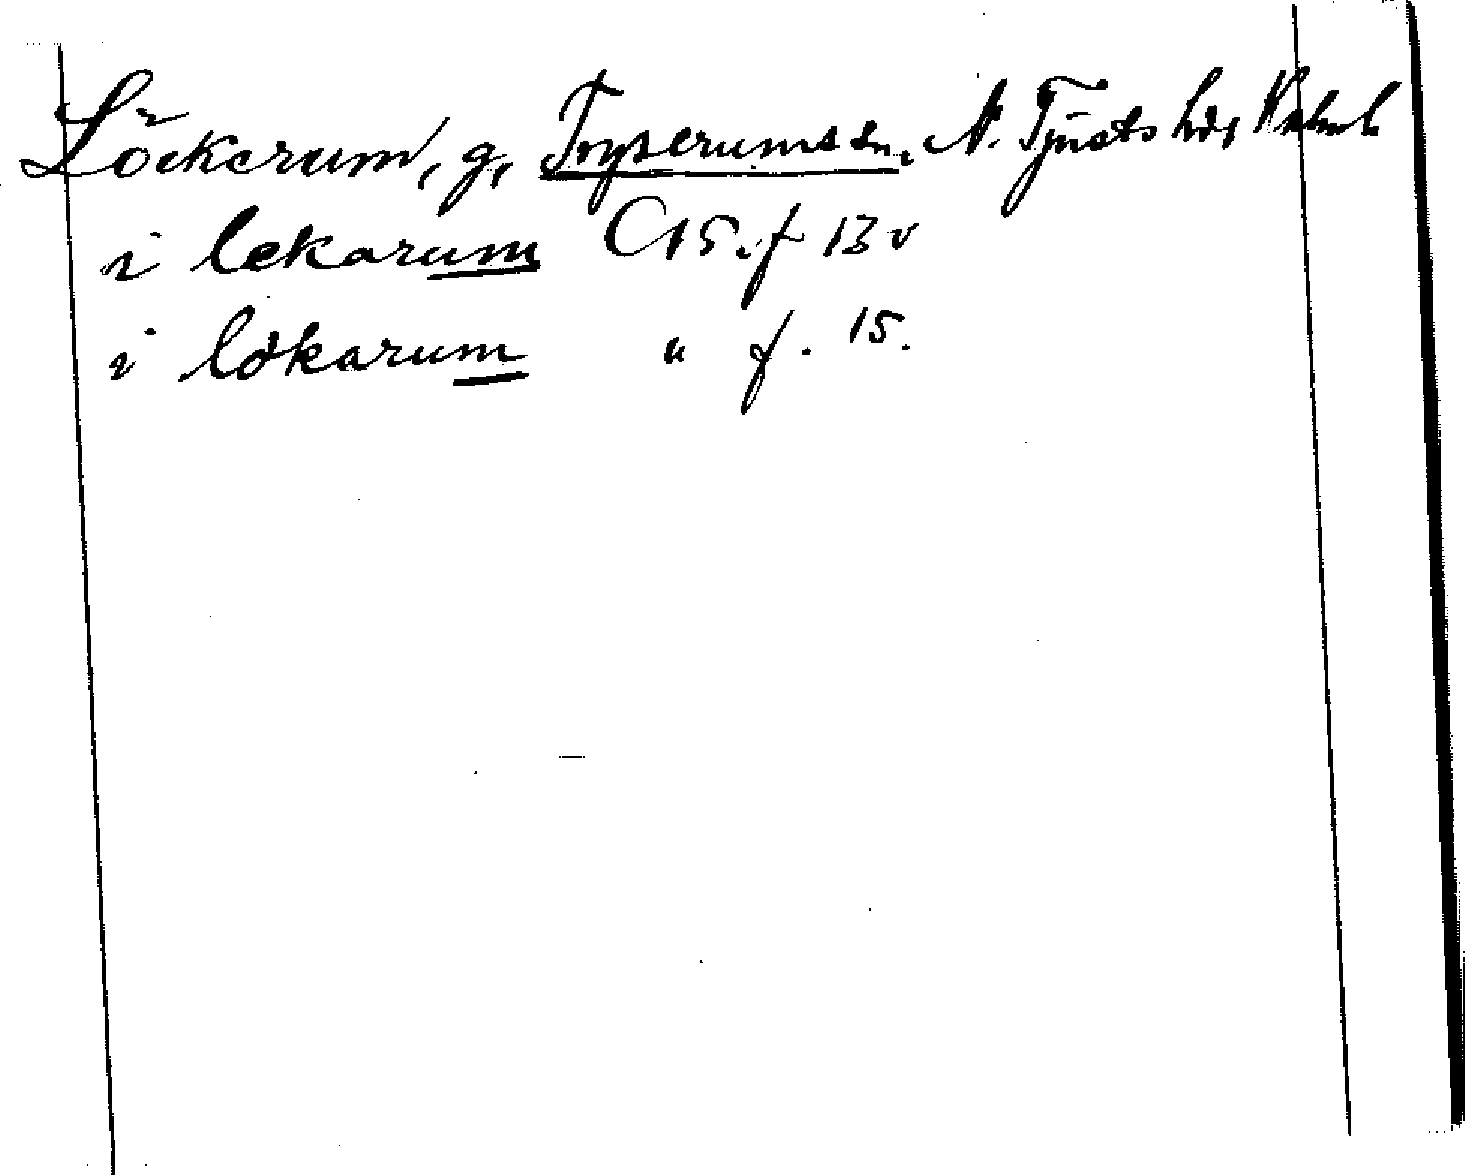 Löckerum, g, Tryserums sn, N. Tjusts hd,
i lekarum C 15. f 13 v
i lökarum " f. 15.